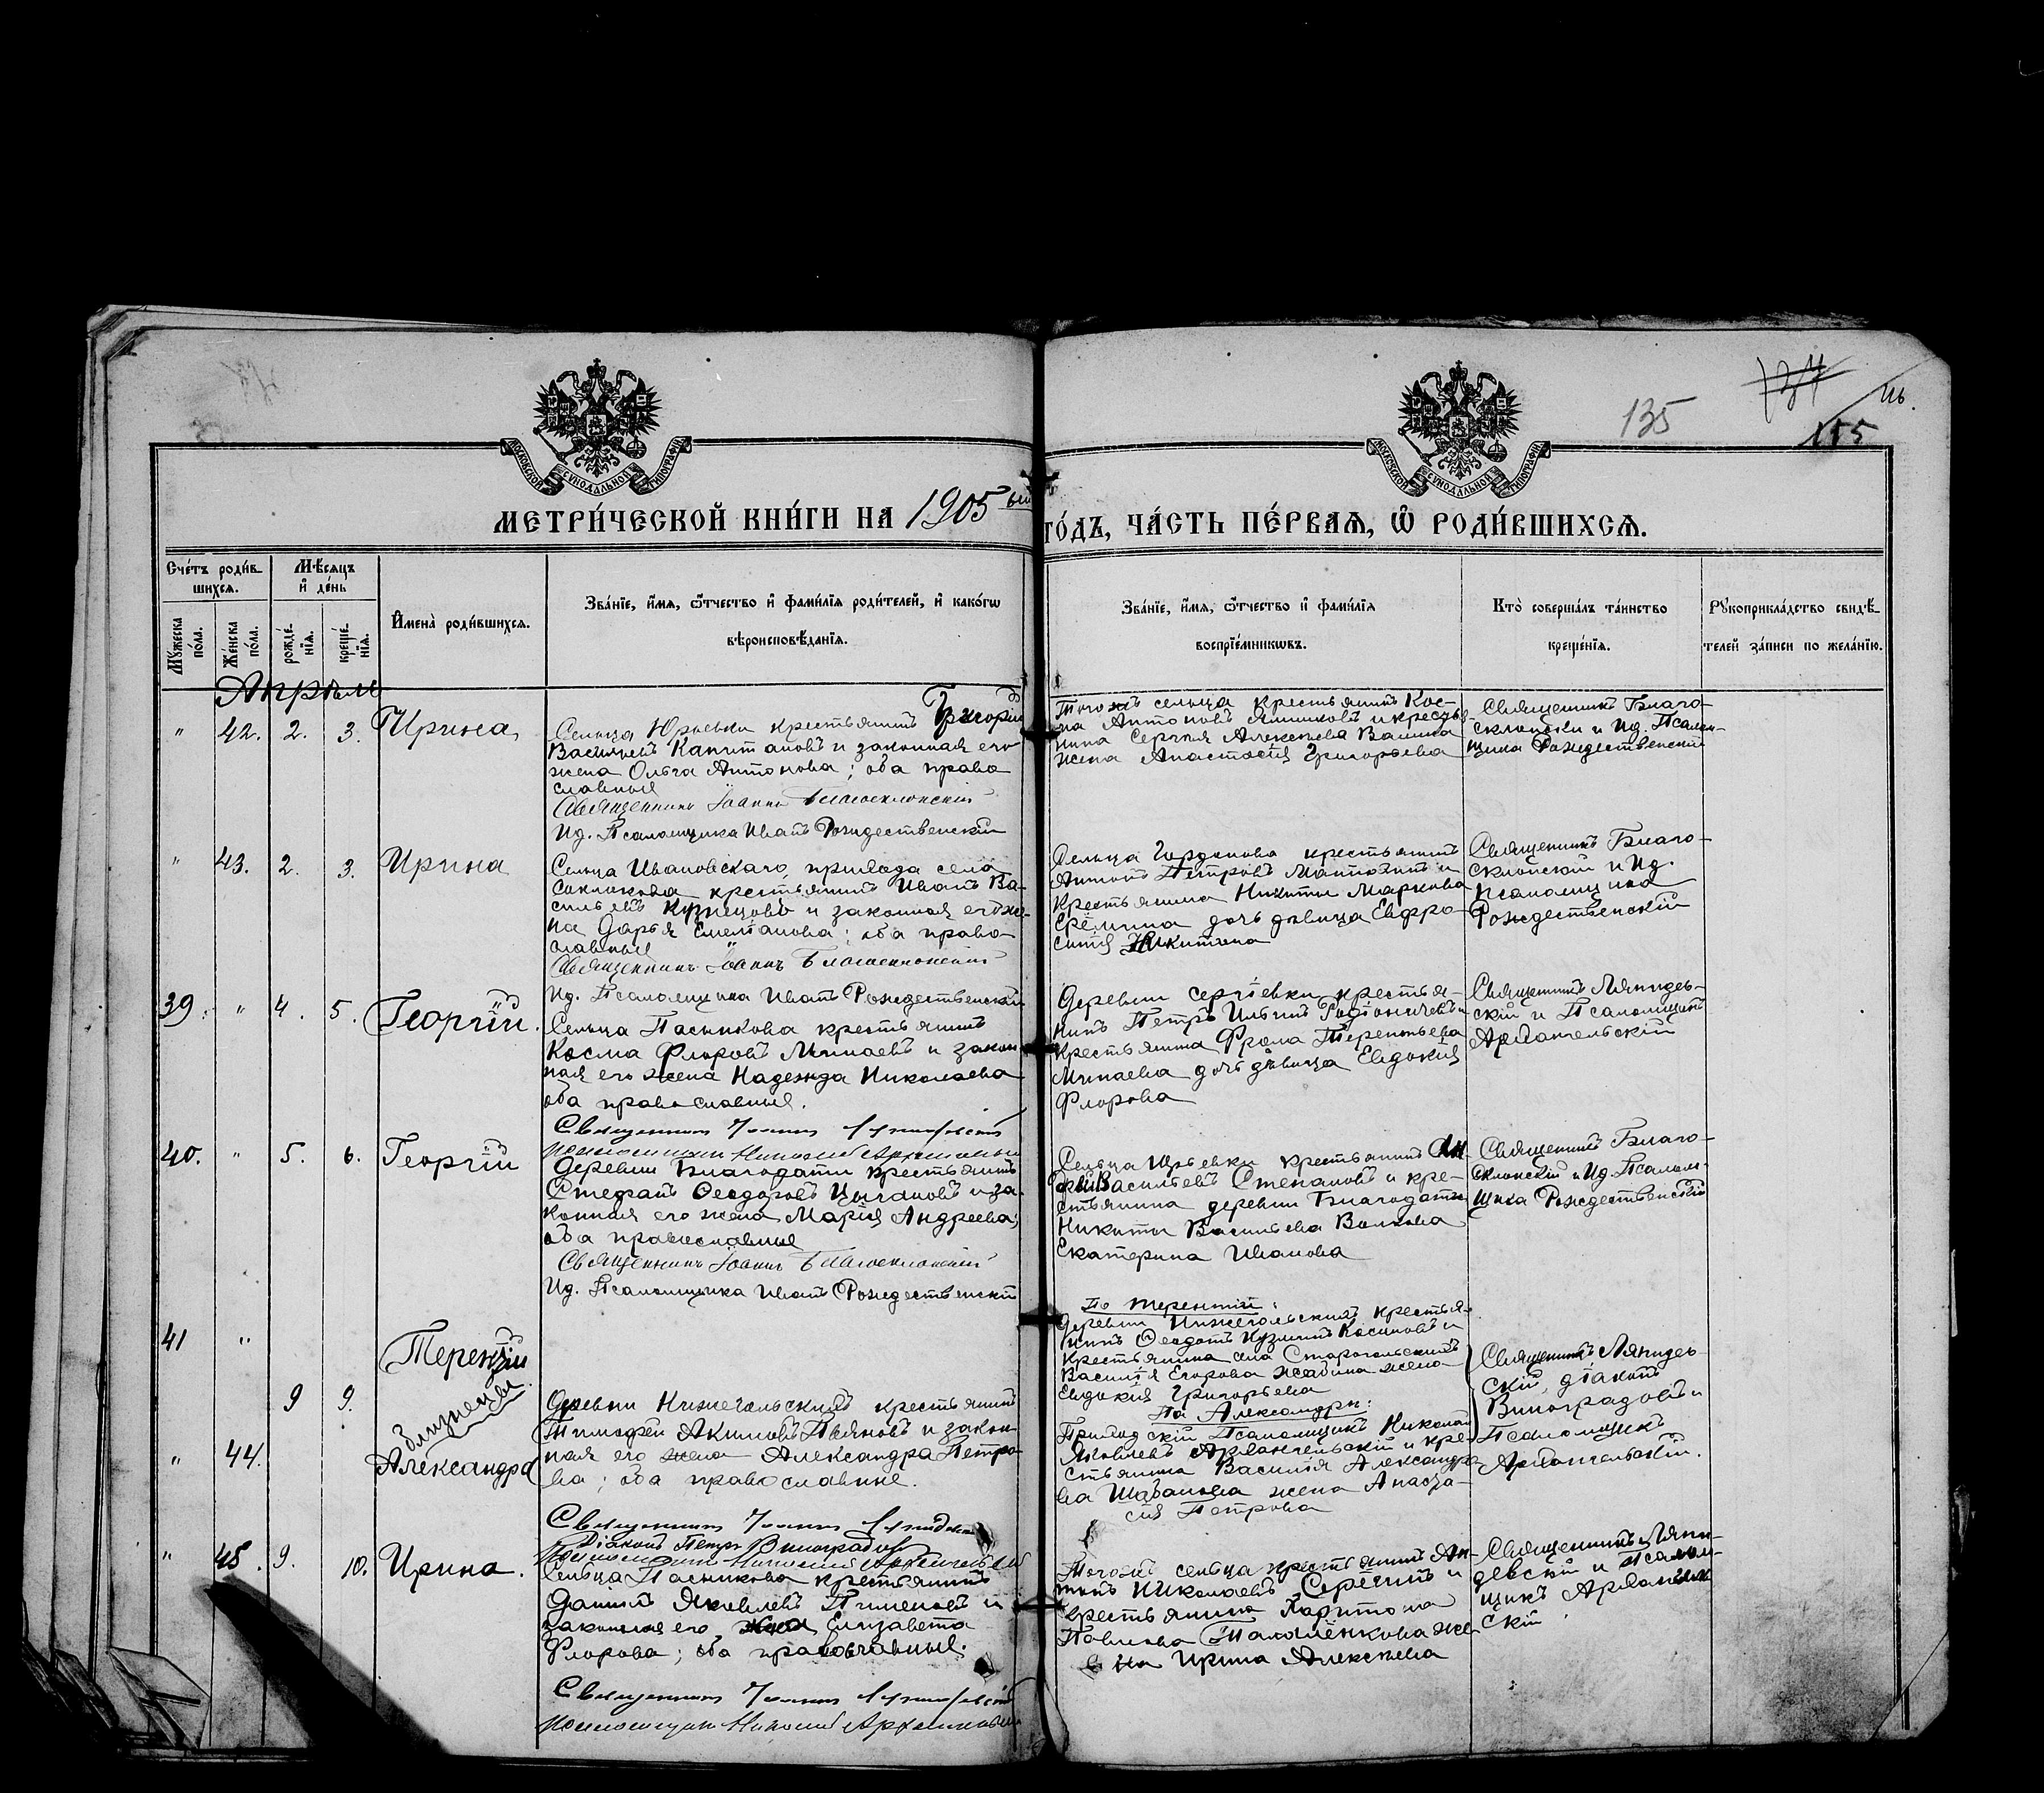 135
134
116.
155
МОСКОВСКОЙ СѴНОДАЛЬНОЙ ТИПОГРАФІИ
МОСКОВСКОЙ СѴНОДАЛЬНОЙ ТИПОГРАФІИ
МЕТРИ́ЧЕСКОЙ КНИ́ГИ НА 1905 ый ГО́ДЪ, ЧА́СТЬ ПЕ́РВАѦ, Ѡ҆ РОДИ́ВШИХСѦ.
Сче́тъ роди́в-
шихсѧ.
Мѣ́сѧцъ
и҆ де́нь
Мꙋжеска по́ла.
Же́нска по́ла.
рожде́-нїѧ.
креще́-нїѧ.
И҆мена̀ роди́вшихсѧ.
Зва́нїе, и҆́мѧ, ѻ҆́тчество и҆ фами́лїѧ роди́телей, и҆ како́гѡ
вѣроисповѣ́данїѧ.
Зва́нїе, и҆́мѧ, ѻ҆́тчество и҆ фами́лїѧ
воспрїе́мникѡвъ.
Кто̀ соверша́лъ та́инство
креще́нїѧ.
Рꙋкоприкла́дство свидѣ́-
телей за́писи по жела́нїю.
Апрѣль
" 42. 2. 3. Ирина
Сельца Юрьевки крестьянинъ Григорій
Васильевъ Капитановъ и законная его
жена Ольга Антонова; оба право
славные
Священникъ Іоаннъ Благосклонскій
Ид. Псаломщика Иванъ Рождественскій
Тогожъ сельца крестьянинъ Кос-
ма Антоновъ и крестья-
нина Сергѣя Алексѣева
жена Анастасія Григорьева
Священникъ Благо-
склонскій и Ид. Псалом-
щика Рождественскій
" 43. 2. 3. Ирина
Сельца Ивановскаго, прихода села
крестьянинъ Иванъ Ва-
сильевъ Кузнецовъ и законная его же-
на Дарья Емельянова; оба право-
славные
Священникъ Іоаннъ Благосклонскій
Ид. Псаломщика Иванъ Рождественскій
Сельца Гордонова крестьянинъ
Антонъ Петровъ и
крестьянина Никиты Маркова
Ерёмина дочь дѣвица Евфро-
синія Никитина
Священникъ Благо-
склонскій и Ид.
Псаломщика
Рождественскій
39. " 4. 5. Георгій.
Сельца Пасникова крестьянинъ
Косма Флоровъ Минаевъ и закон-
ная его жена Надежда Николаева
оба православные.
Деревни Сергіевки крестья-
нинъ Петръ Ильинъ Родіоничевъ и
крестьянина Фрола Терентьева
Минаева дочь дѣвица Евдокія
Флорова
Священникъ
и Псаломщикъ
Архангельскій
40. " 5. 6. Георгій
Деревни Благодати крестьянинъ
Стефанъ Ѳеодоровъ Цыгановъ и за-
конная его жена Марія Андреева;
оба православные
Священникъ Іоаннъ Благосклонскій
Ид. Псаломщика Иванъ Рождественскій
Сельца Юрьевки крестьянинъ
Васильевъ Степановъ и кре-
стьянина деревни Благодати
Никиты Васильева Волкова
Екатерина Иванова
Священникъ Благо-
склонскій и Ид. Псалом-
щика Рождественскій
41 " Терентій
близнецы
9 9.
" 44. Александра
Деревни крестьянинъ
Тимофей Акимовъ Пьяновъ и закон-
ная его жена Александра Петро-
ва; оба православные.
Діаконъ Петръ Виноградовъ
По Терентіи:
крестья-
нинъ Ѳеодотъ Кузминъ Косиновъ и
крестьянина села
Василія Егорова жена
Евдокія Григорьева
По Александрѣ:
Приходскій Псаломщикъ Николай
Яковлевъ Архангельскій и кре-
стьянина Василія Александро-
ва Шабанова жена Анаста-
сія Петрова
Священникъ
діаконъ
Виноградовъ и
Псаломщикъ
Архангельскій.
" 45. 9. 10. Ирина.
Сельца Пасникова крестьянинъ
Даніилъ Яковлевъ Пименовъ и
законная его жена Елизавета
Флорова; оба православные.
Тогожъ сельца крестьянинъ Ан-
тонъ Николаевъ Серёгинъ и
крестьянина Харитона
Павлова жена
Ирина Алексѣева
Священникъ
и Псалом-
щикъ Архангель-
скій